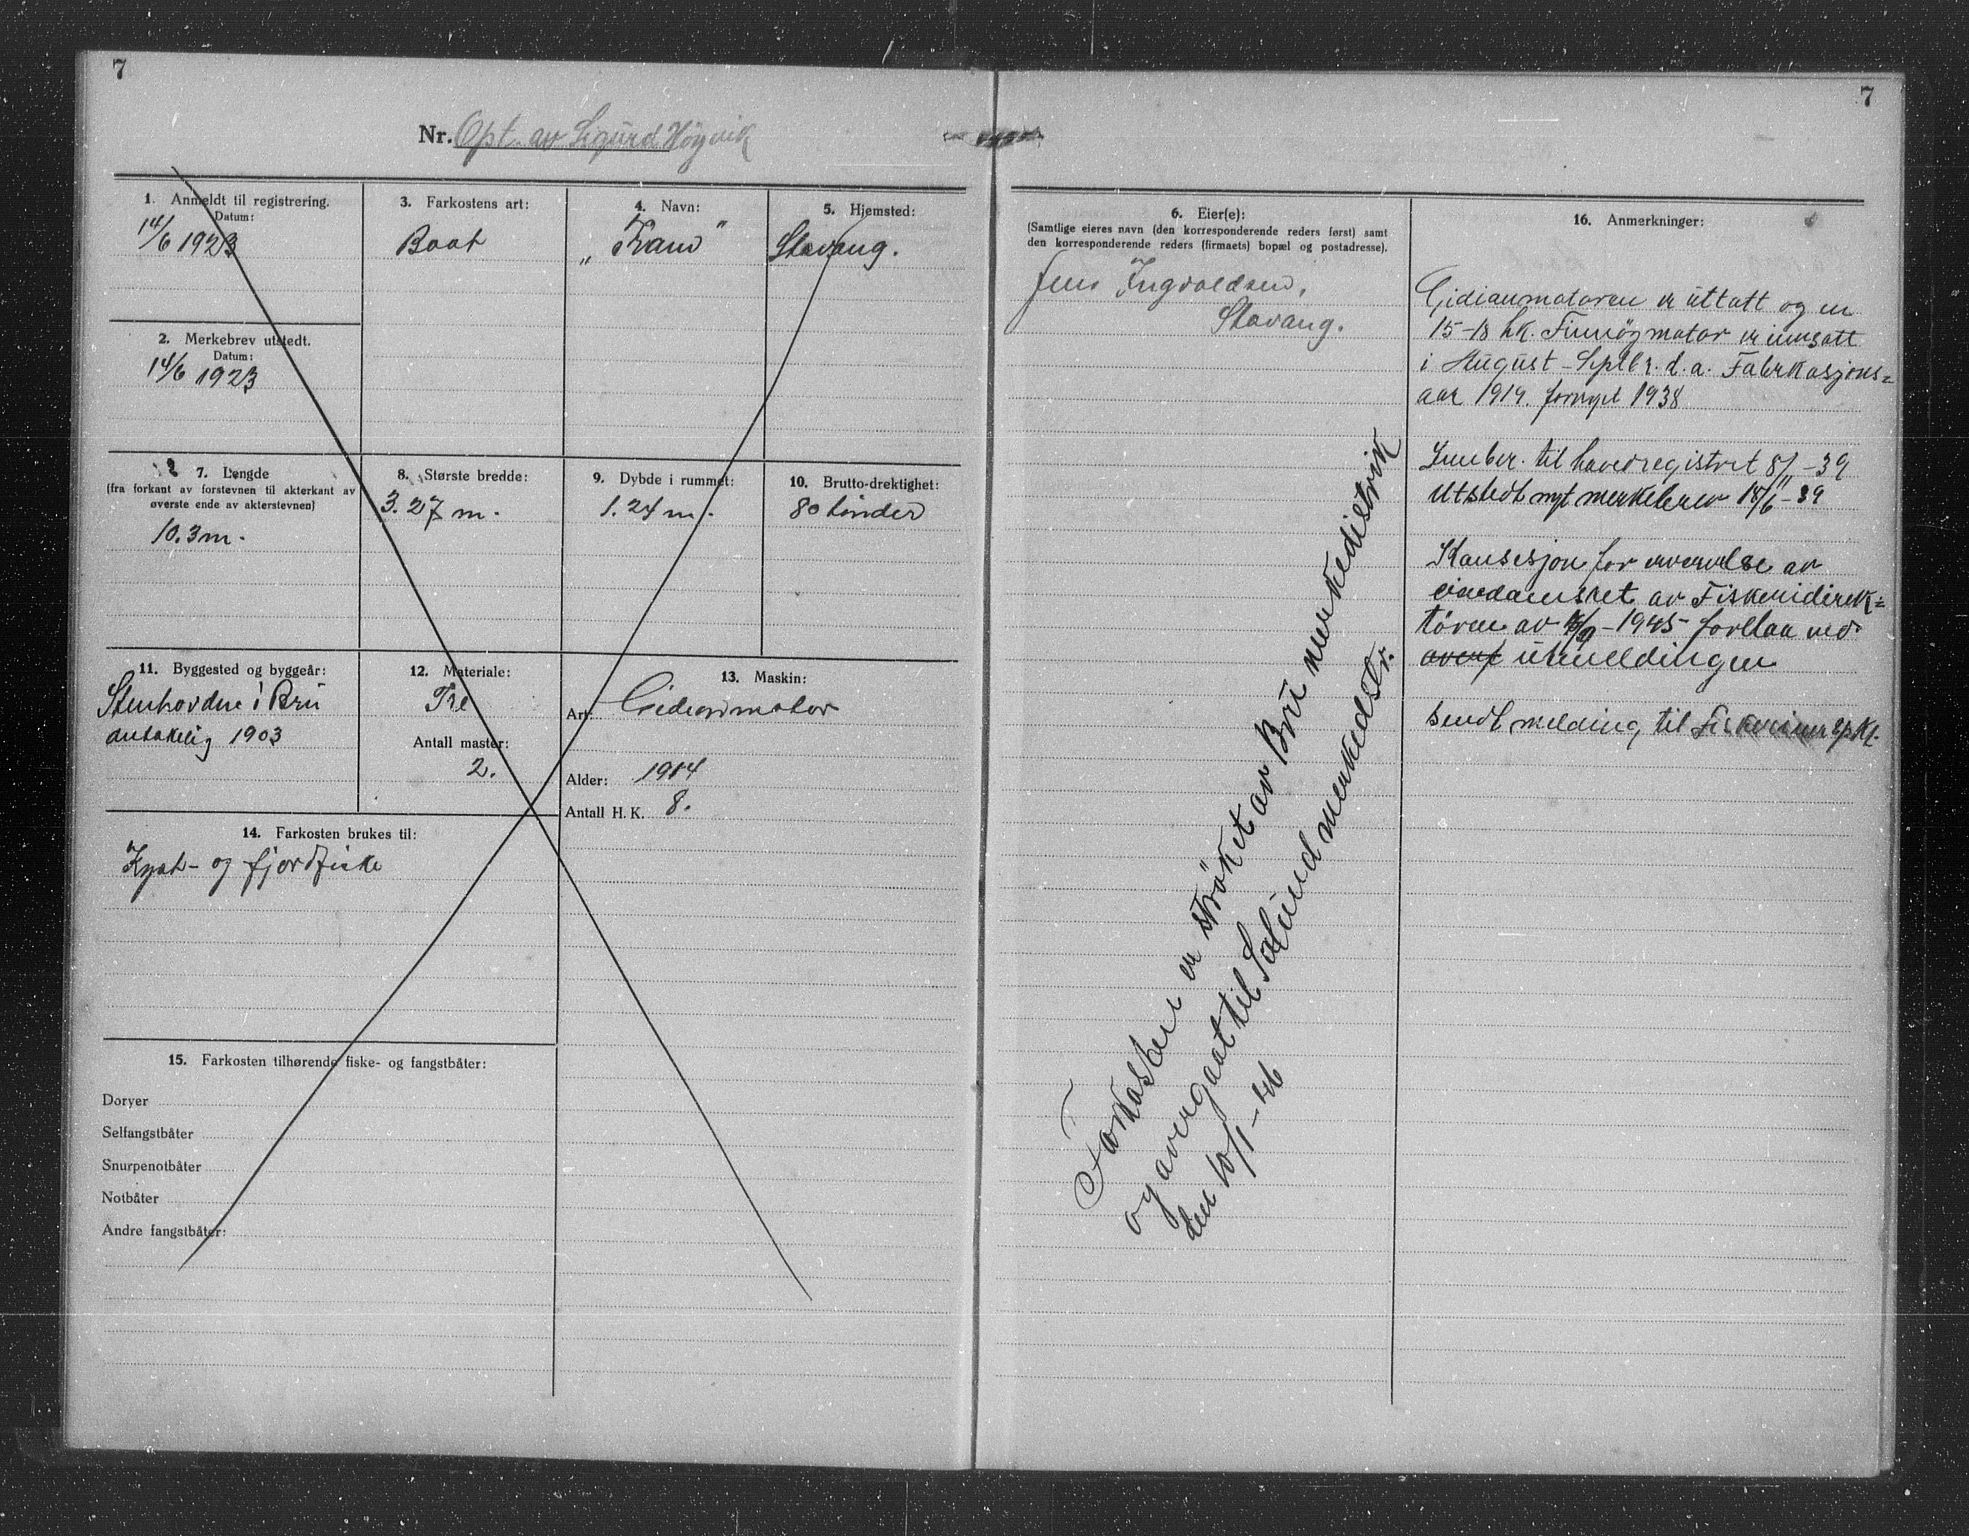 7
Nr. Opt. av Sigurd Høyvik
1. Anmeldt til registrering.
Datum:
14/6 1923
2. Merkebrev utstedt.
Datum:
14/6 1923
3. Farkostens art:
Baat
4. Navn:
„ Fram "
5. Hjemsted:
Stavang.
7. Lengde
(fra forkant av forstevnen til akterkant av
øverste ende av akterstevnen)
10.3 m.
8. Største bredde:
3.27 m.
9. Dybde i rummet:
1.24 m.
10. Brutto-drektighet:
80 tønder
11. Byggested og byggeår:
i Bru
antakelig 1903
12. Materiale:
Tre
Antall master:
2.
13. Maskin:
Art: Gideonmotor
Alder: 1914
Antall H. K. 8.
14. Farkosten brukes til:
Kyst- og fjordfiske
15. Farkosten tilhørende fiske- og fangstbåter:
Doryer
Selfangstbåter
Snurpenotbåter
Notbåter
Andre fangstbåter:
7
6. Eier(e):
(Samtlige eieres navn (den korresponderende reders først) samt
den korresponderende reders (firmaets) bopæl og postadresse).
Jens Ingvaldsen,
Stavang.
Farkosten er strøket av Bru merkedistrik
og avergaat til Solund merkedistr.
den 10/1-46
16. Anmerkninger:
Gidianmotoren er uttatt og en
15-18 hk. Finnøymotor er innsatt
i August - Septbr. d.a. Fabrkasjons=
aar 1919. fornyet 1938
Innber. til hovedregistret 8/11-39
Utstedt nyt merkebrev 18/6-39
Konsesjon for av
av Fiskeridirek=
tøren av /9-1945 forelaa ved
utmeldingen
Sendt melding til